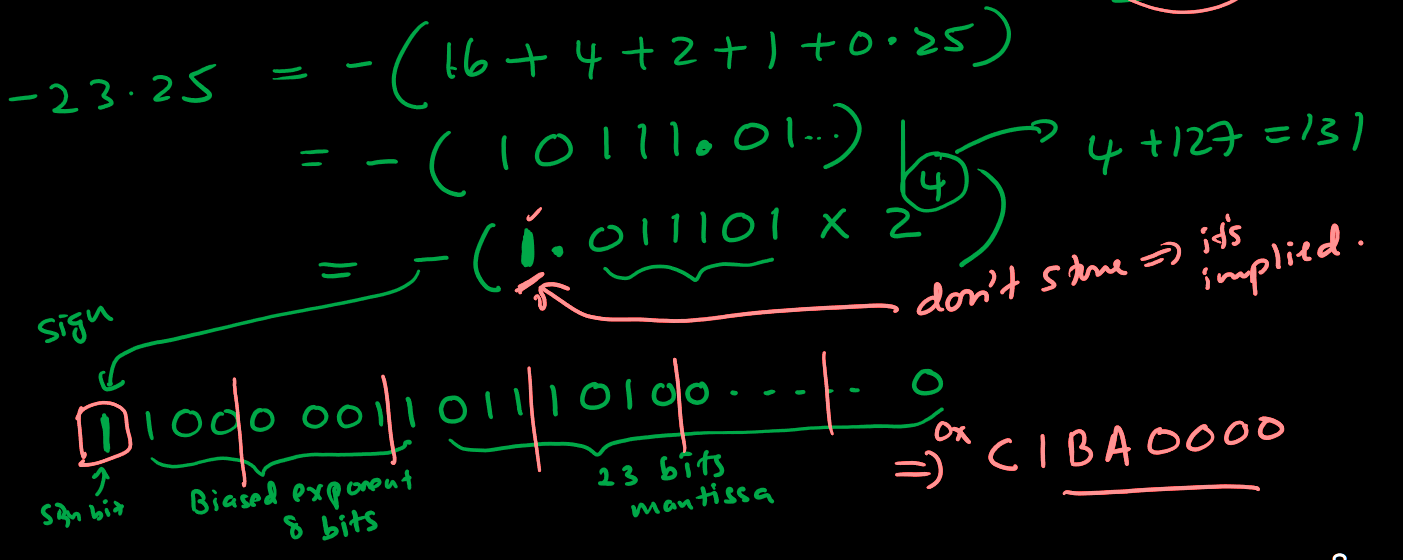 -23.25 = -(16+4+2+1+0.25)
= -(10111.01..)
4 +127 =131
= -(1.011101 x 2^4
don't store => it's implied.
sign
1 1000 0011 01110100 ...... 0
sign bit
Biased exponent
8 bits
23 bits
mantissa
=> 0x C1BA0000